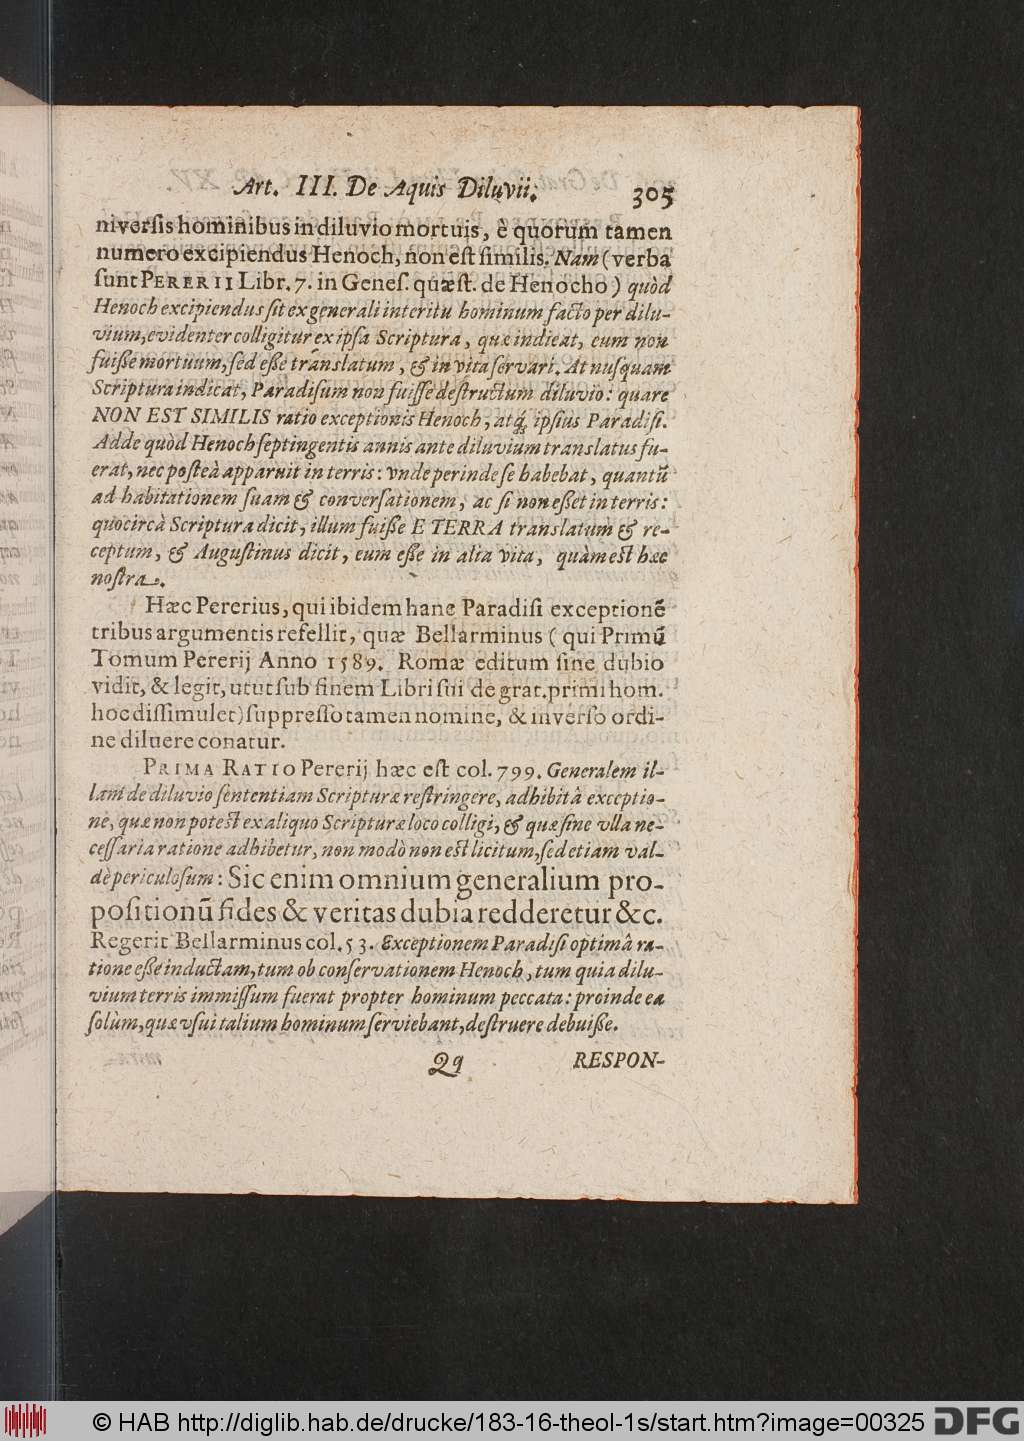 Art. III. De Aquis Diluvii. 305
niversis hominibus in diluvio mortuis, è quorum tamen
numero excipiendus Henoch, non est similis. Nam (verba
sunt PERERII Libr. 7. in Genes. quæst. de Henocho) quòd
Henoch excipiendus sit ex generali interitu hominum facto per dilu-
vium, evidenter colligitur ex ipsa Scriptura, quæ indicat, eum non
fuisse mortuum, sed esse translatum, & in vita servari. At nusquam
Scriptura indicat, Paradisum non fuisse destructum diluvio: quare
NON EST SIMILIS ratio exceptionis Henoch, atq́; ipsius Paradisi.
Adde quòd Henoch septingentis annis ante diluvium translatus fu-
erat, nec posteà apparuit in terris: vnde perinde se habebat, quantũ
ad habitationem suam & conversationem, ac si non esset in terris:
quocircà Scriptura dicit, illum fuisse E TERRA translatum & re-
ceptum, & Augustinus dicit, eum esse in alia vita, quàm est hæc
nostra.
Hæc Pererius, qui ibidem hanc Paradisi exceptionẽ
tribus argumentis refellit, quæ Bellarminus (qui Primũ
Tomum Pererij Anno 1589. Romæ editum sine dubio
vidit, & legit, utut sub finem Libri sui de grat. primi hom.
hoc dissimulet) suppresso tamen nomine, & inverso ordi-
ne diluere conatur.
PRIMA RATIO Pererij hæc est col. 799. Generalem il-
lam de diluvio sententiam Scripturæ restringere, adhibitâ exceptio-
ne, quæ non potest ex aliquo Scripturæ loco colligi, & quæ sine vlla ne-
cessaria ratione adhibetur, non modò non est licitum, sed etiam val-
dè periculosum: Sic enim omnium generalium pro-
positionũ fides & veritas dubia redderetur &c.
Regerit Bellarminus col. 53. Exceptionem Paradisi optimâ ra-
tione esse inductam, tum ob conservationem Henoch, tum quia dilu-
vium terris immissum fuerat propter hominum peccata: proinde ea
solùm, quæ vsui talium hominum serviebant, destruere debuisse.
Qq RESPON-
© HAB http://diglib.hab.de/drucke/183-16-theol-1s/start.htm?image=00325 DFG